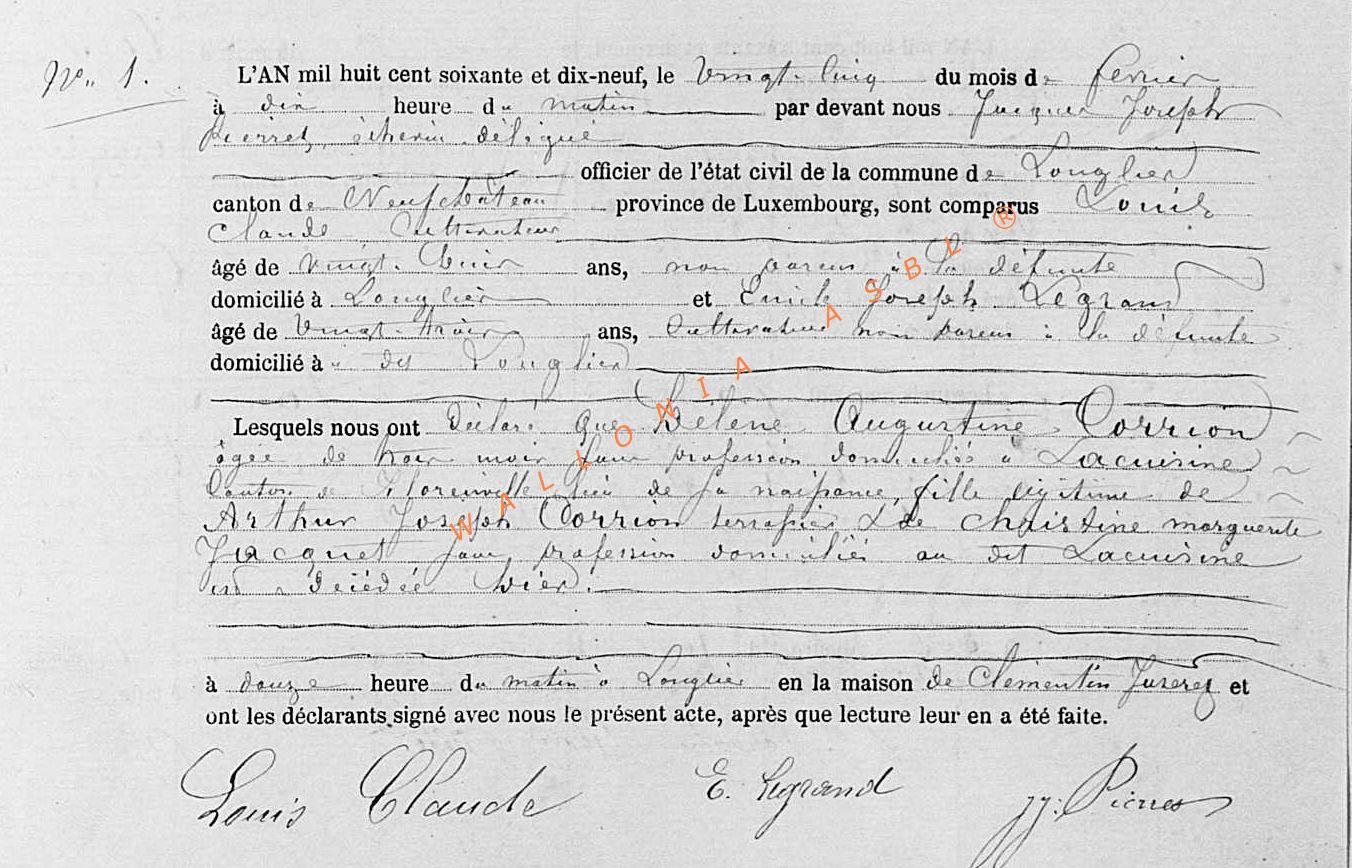 N° 1.
L'AN mil huit cent soixante et dix-neuf, le vingt-cinq du mois de fevrier
à dix heure du matin par devant nous Jacques Joseph
Pierret, échevin délégué
officier de l'état civil de la commune de Longlier
canton de Neufchâteau province de Luxembourg, sont comparus Louis
Claude Cultivateur
âgé de vingt- ans, non parent à la défunte
domicilié à Longlier et Emile Joseph Legrand
âgé de vingt-trois ans, Cultivateur non parent à la défunte
domicilié à dit Longlier
Lesquels nous ont déclaré que Hélène Augustine Corrion
âgée de trois mois sans profession domiciliée à Lacuisine
Canton de Florenville lieu de sa naissance, fille légitime de
Arthur Joseph Corrion terrassier & de Christine marguerite
Jacquet sans profession domiciliés au dit Lacuisine
est décédée hier
à douze heure du matin à Longlier en la maison de Clémentin et
ont les déclarants signé avec nous le présent acte, après que lecture leur en a été faite.
Louis Claude E. Legrand JJ: Pierret
WALLONIA ASBL ®